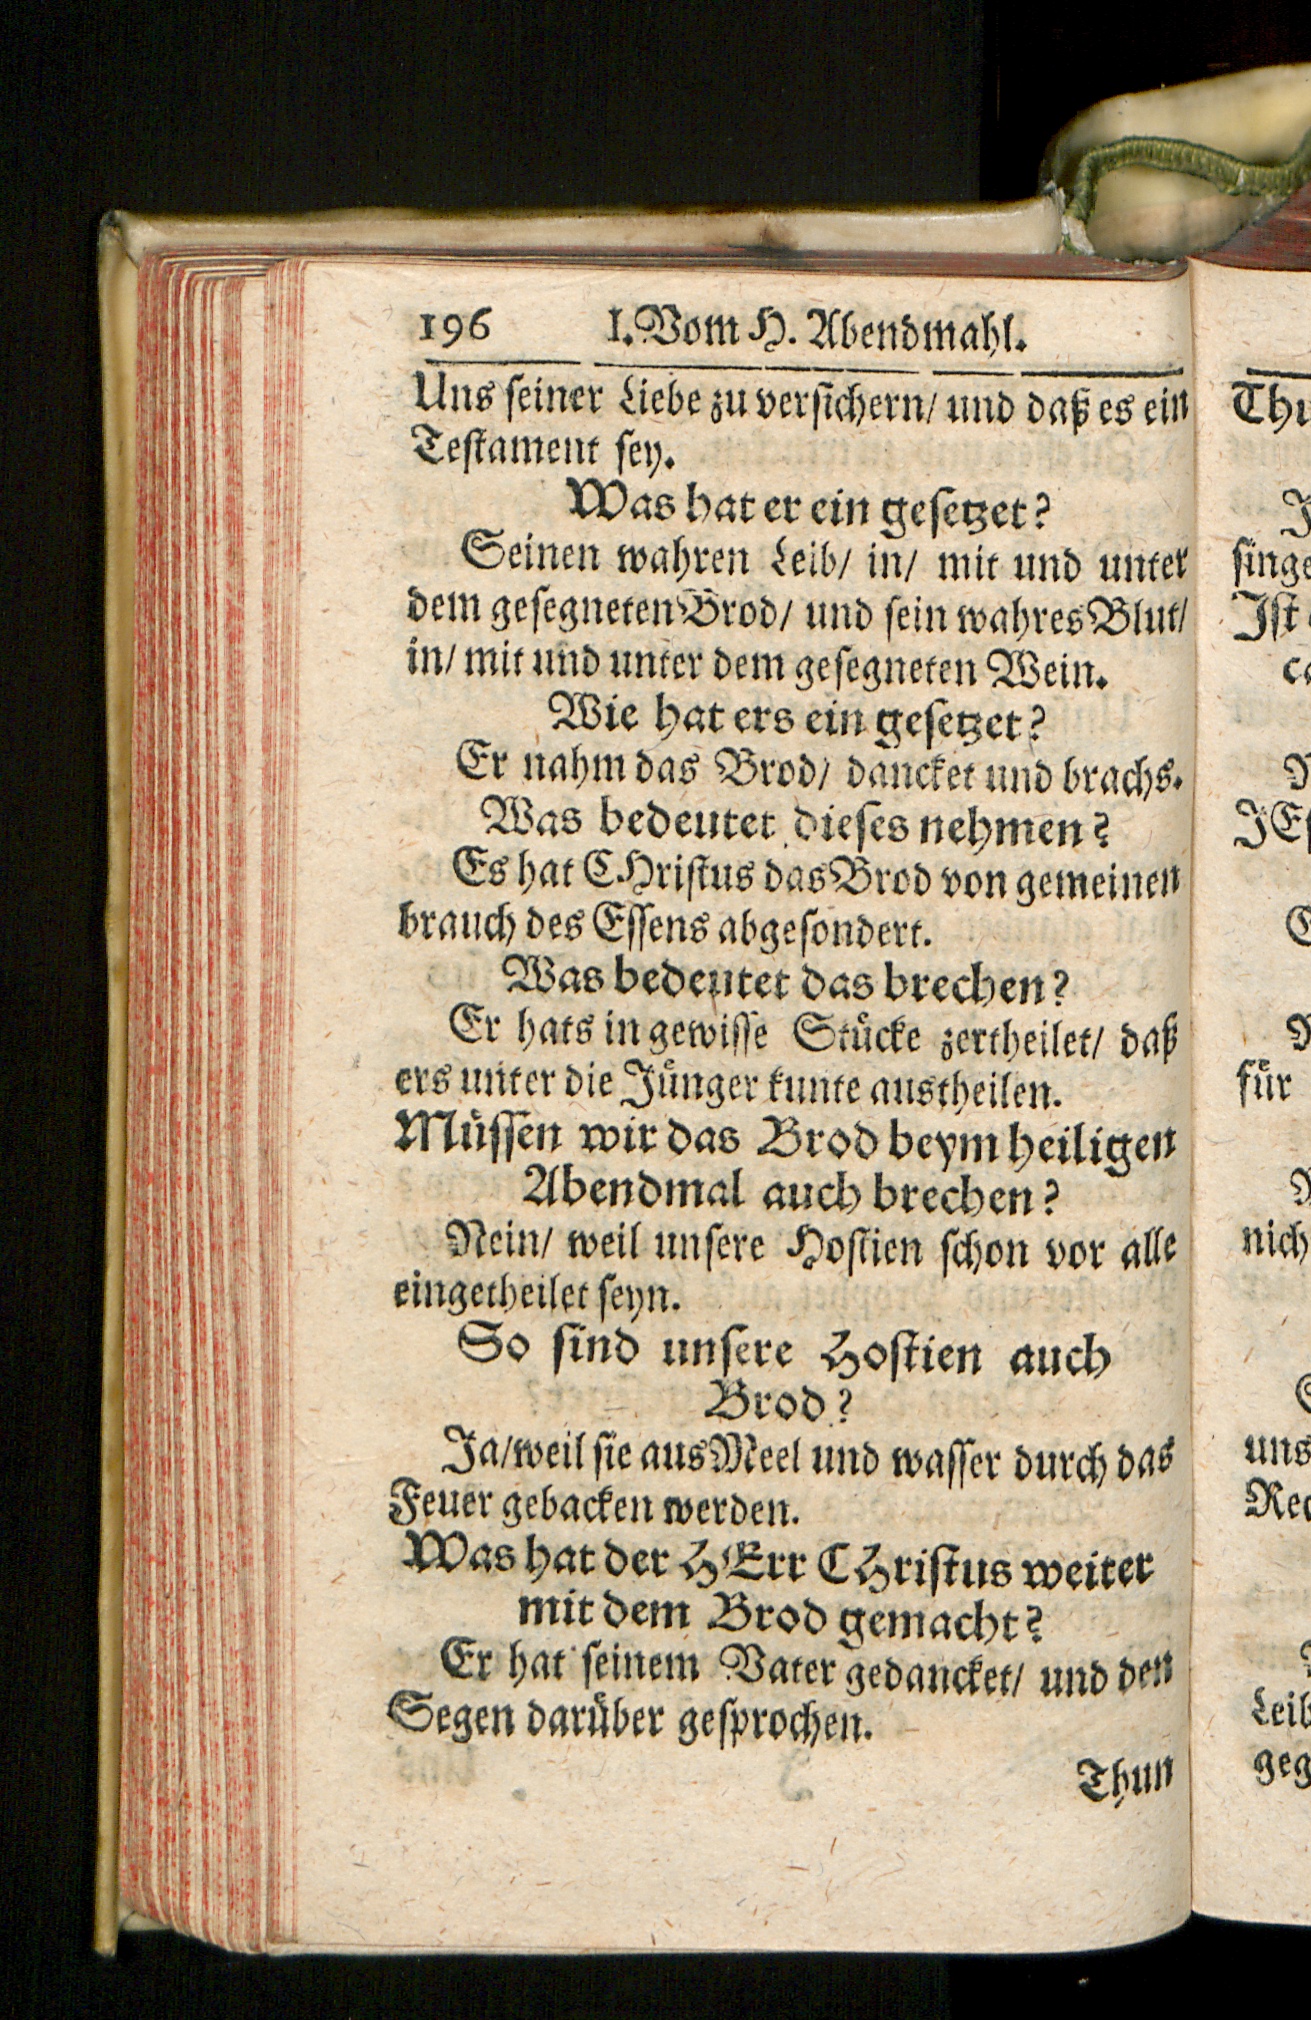 196 I. Vom H. Abendmahl.
Uns seiner Liebe zu versichern/ und daß es ein
Testament sey.
Was hat er ein gesetzet?
Seinen wahren Leib/ in/ mit und unter
dem gesegneten Brod/ und sein wahres Blut/
in/ mit und unter dem gesegneten Wein.
Wie hat ers ein gesetzet?
Er nahm das Brod/ dancket und brachs.
Was bedeutet dieses nehmen?
Es hat CHristus das Brod von gemeinen
brauch des Essens abgesondert.
Was bedeutet das brechen?
Er hats in gewisse Stücke zertheilet/ daß
ers unter die Jünger kunte austheilen.
Müssen wir das Brod beym heiligen
Abendmal auch brechen?
Nein/ weil unsere Hostien schon vor alle
eingetheilet seyn.
So sind unsere Hostien auch
Brod?
Ja/weil sie aus Meel und wasser durch das
Feuer gebacken werden.
Was hat der HErr CHristus weiter
mit dem Brod gemacht?
Er hat seinem Vater gedancket/ und den
Segen darüber gesprochen.
Thun
für
uns